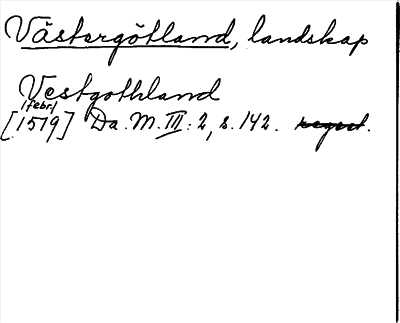 Västergötland, landskap
Vestgothland
/febr./
[1519] Da. M. III: 2, s. 142. regest.